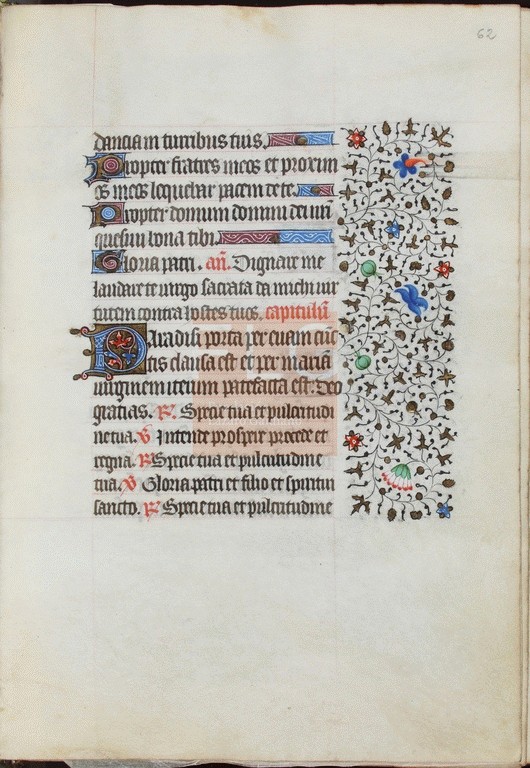 62
dantia in turribus tuis.
Propter fratres meos et proxim
os meos loquebar pacem de te.
Propter domum domini dei nr̄i
quesiui bona tibi.
Gloria patri. añ. Dignare me
laudare te uirgo sacrata da michi uir
tutem contra hostes tuos. capitulū
Paradisi porta per euam cūc
tis clausa est et per mariā
uirginem iterum patefacta est. Deo
gratias. ℟. Specie tua et pulcritudi
ne tua. ℣ Intende prospere procede et
regna. ℟ Specie tua et pulcritudine
tua. ℣ Gloria patri et filio et spiritui
sancto. ℟ Specie tua et pulcritudine